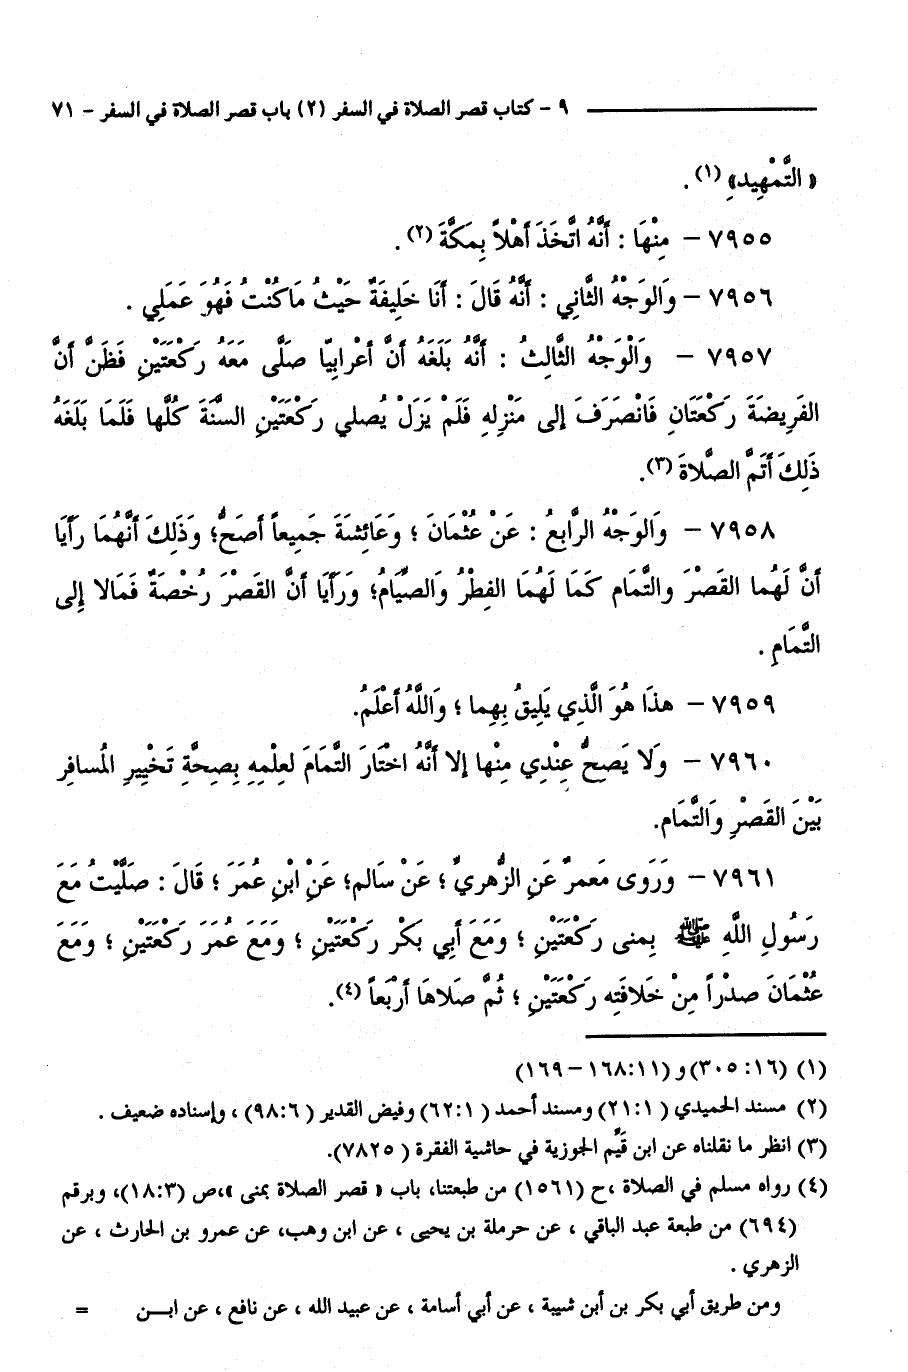 ٩ - كتاب قصر الصلاة في السفر (٢) باب قصر الصلاة في السفر - ٧١
« التَّمْهِيدِ» (١) .
٧٩٥٥ - مِنْهَا : أَنَّهُ اتَّخَذَ أَهْلاً بِمَكَّةَ (٢) .
٧٩٥٦ - وَالوَجْهُ الثَّانِي : أَنَّهُ قَالَ : أَنَا خَلِيفَةٌ حَيْثُ مَاكُنْتُ فَهُوَ عَمَلِي .
٧٩٥٧ - وَالْوَجْهُ الثَّالِثُ : أَنَّهُ بَلَغَهُ أَنَّ أَعْرابِيّا صَلَّى مَعَهُ رَكْعَتَيْنِ فَظَنَّ أَنَّ
الفَرِيضَةَ رَكْعَتَانِ فَانْصَرَفَ إِلى مَنْزِلِهِ فَلَمْ يَزَلْ يُصلي رَكْعَتَيْنِ السَّنَةَ كُلَّها فَلَمَا بَلَغَهُ
ذَلِكَ أَتَمَّ الصَّلاةَ (٣).
٧٩٥٨ - وَالوَجْهُ الرَّابِعُ : عَنْ عُثْمَانَ ؛ وَعَائِشَةَ جَمِيعاً أَصَحُّ؛ وَذَلِكَ أَنَّهُمَا رَأَيَا
أَنَّ لَهُما القَصْرَ والتَّمَام كَمَا لَهُمَا الفِطْرُ وَالصِّيَامُ؛ وَرَأَيَا أَنَّ القَصْرَ رُخْصَةٌ فَمَالا إِلى
التَّمَامِ .
٧٩٥٩ - هذَا هُوَ الَّذِي يَلِيقُ بِهِما ؛ وَاللَّهُ أَعْلَمُ.
٧٩٦٠ - وَلا يَصِحُّ عِنْدِي مِنْها إلا أَنَّهُ اخْتَارَ التَّمَامَ لعِلْمِهِ بِصِحَّةِ تَخْيِيرِ المُسافِرِ
بَيْنَ القَصْرِ وَالتَّمَام.
٧٩٦١ - وَرَوَى مَعمرٌ عَنِ الزُّهريِّ ؛ عَنْ سَالم؛ عَنِ ابْنِ عُمَرَ ؛ قَالَ : صَلَّيْتُ مَعَ
رَسُولِ اللَّهِ ﷺ بِمنى رَكْعَتَيْنِ ؛ وَمَعَ أَبِي بَكْر رَكْعَتَيْنِ ؛ وَمَعَ عُمَرَ رَكْعَتَيْنِ ؛ وَمَعَ
عُثْمَانَ صدْراً مِنْ خلافَتِه رَكْعَتَيْنِ ؛ ثُمَّ صَلاهَا أَرْبَعاً (٤).
(١) (١٦: ٣٠٥) و (١١: ١٦٨ - ١٦٩)
(٢) مسند الحميدي ( ١: ٢١) ومسند أحمد ( ١: ٦٢) وفيض القدير ( ٦: ٩٨) ، وإسناده ضعيف .
(٣) انظر ما نقلناه عن ابن قَيِّم الجوزية في حاشية الفقرة ( ٧٨٢٥).
(٤) رواه مسلم في الصلاة ،ح (١٥٦١) من طبعتنا، باب « قصر الصلاة بمنى »،ص (٣: ١٨)، وبرقم
(٦٩٤) من طبعة عبد الباقي ، عن حرملة بن يحيى ، عن ابن وهب، عن عمرو بن الحارث ، عن
الزهري .
ومن طريق أبي بكر بن أبن شيبة ، عن أبي أسامة ، عن عبيد الله ، عن نافع ، عن ابـــن =